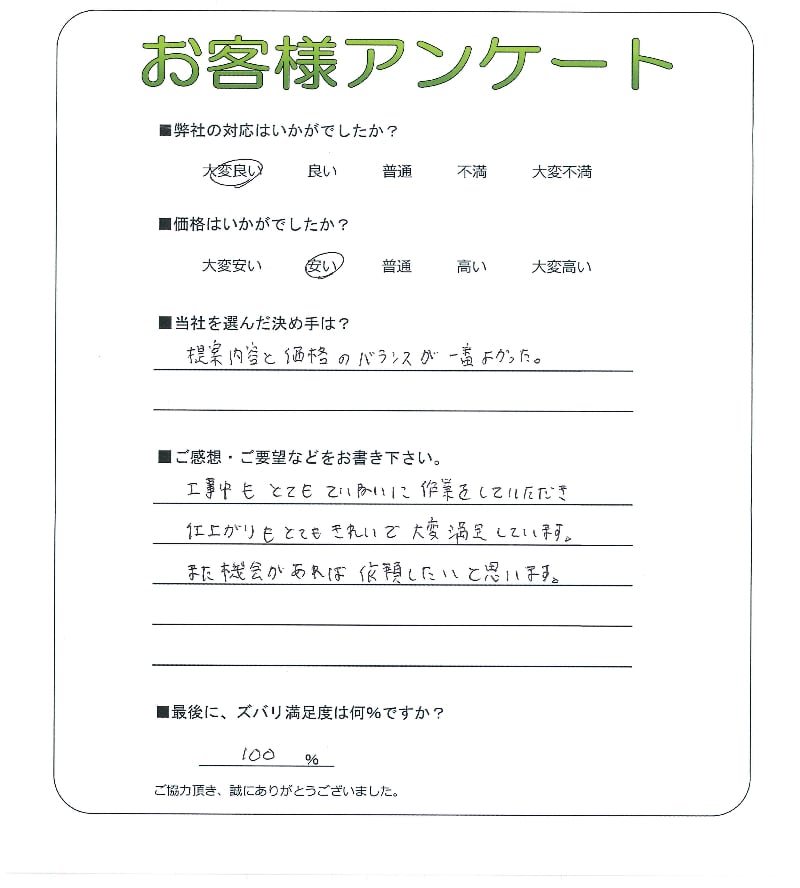 お客様アンケート
■弊社の対応はいかがでしたか？
大変良い 良い 普通 不満 大変不満
■価格はいかがでしたか？
大変安い 安い 普通 高い 大変高い
■当社を選んだ決め手は？
提案内容と価格のバランスが一番よかった。
■ご感想・ご要望などをお書き下さい。
工事中もとてもていねいに作業をしていただき
仕上がりもとてもきれいで大変満足しています。
また機会があれば依頼したいと思います。
■最後に、ズバリ満足度は何％ですか？
100 %
ご協力頂き、誠にありがとうございました。